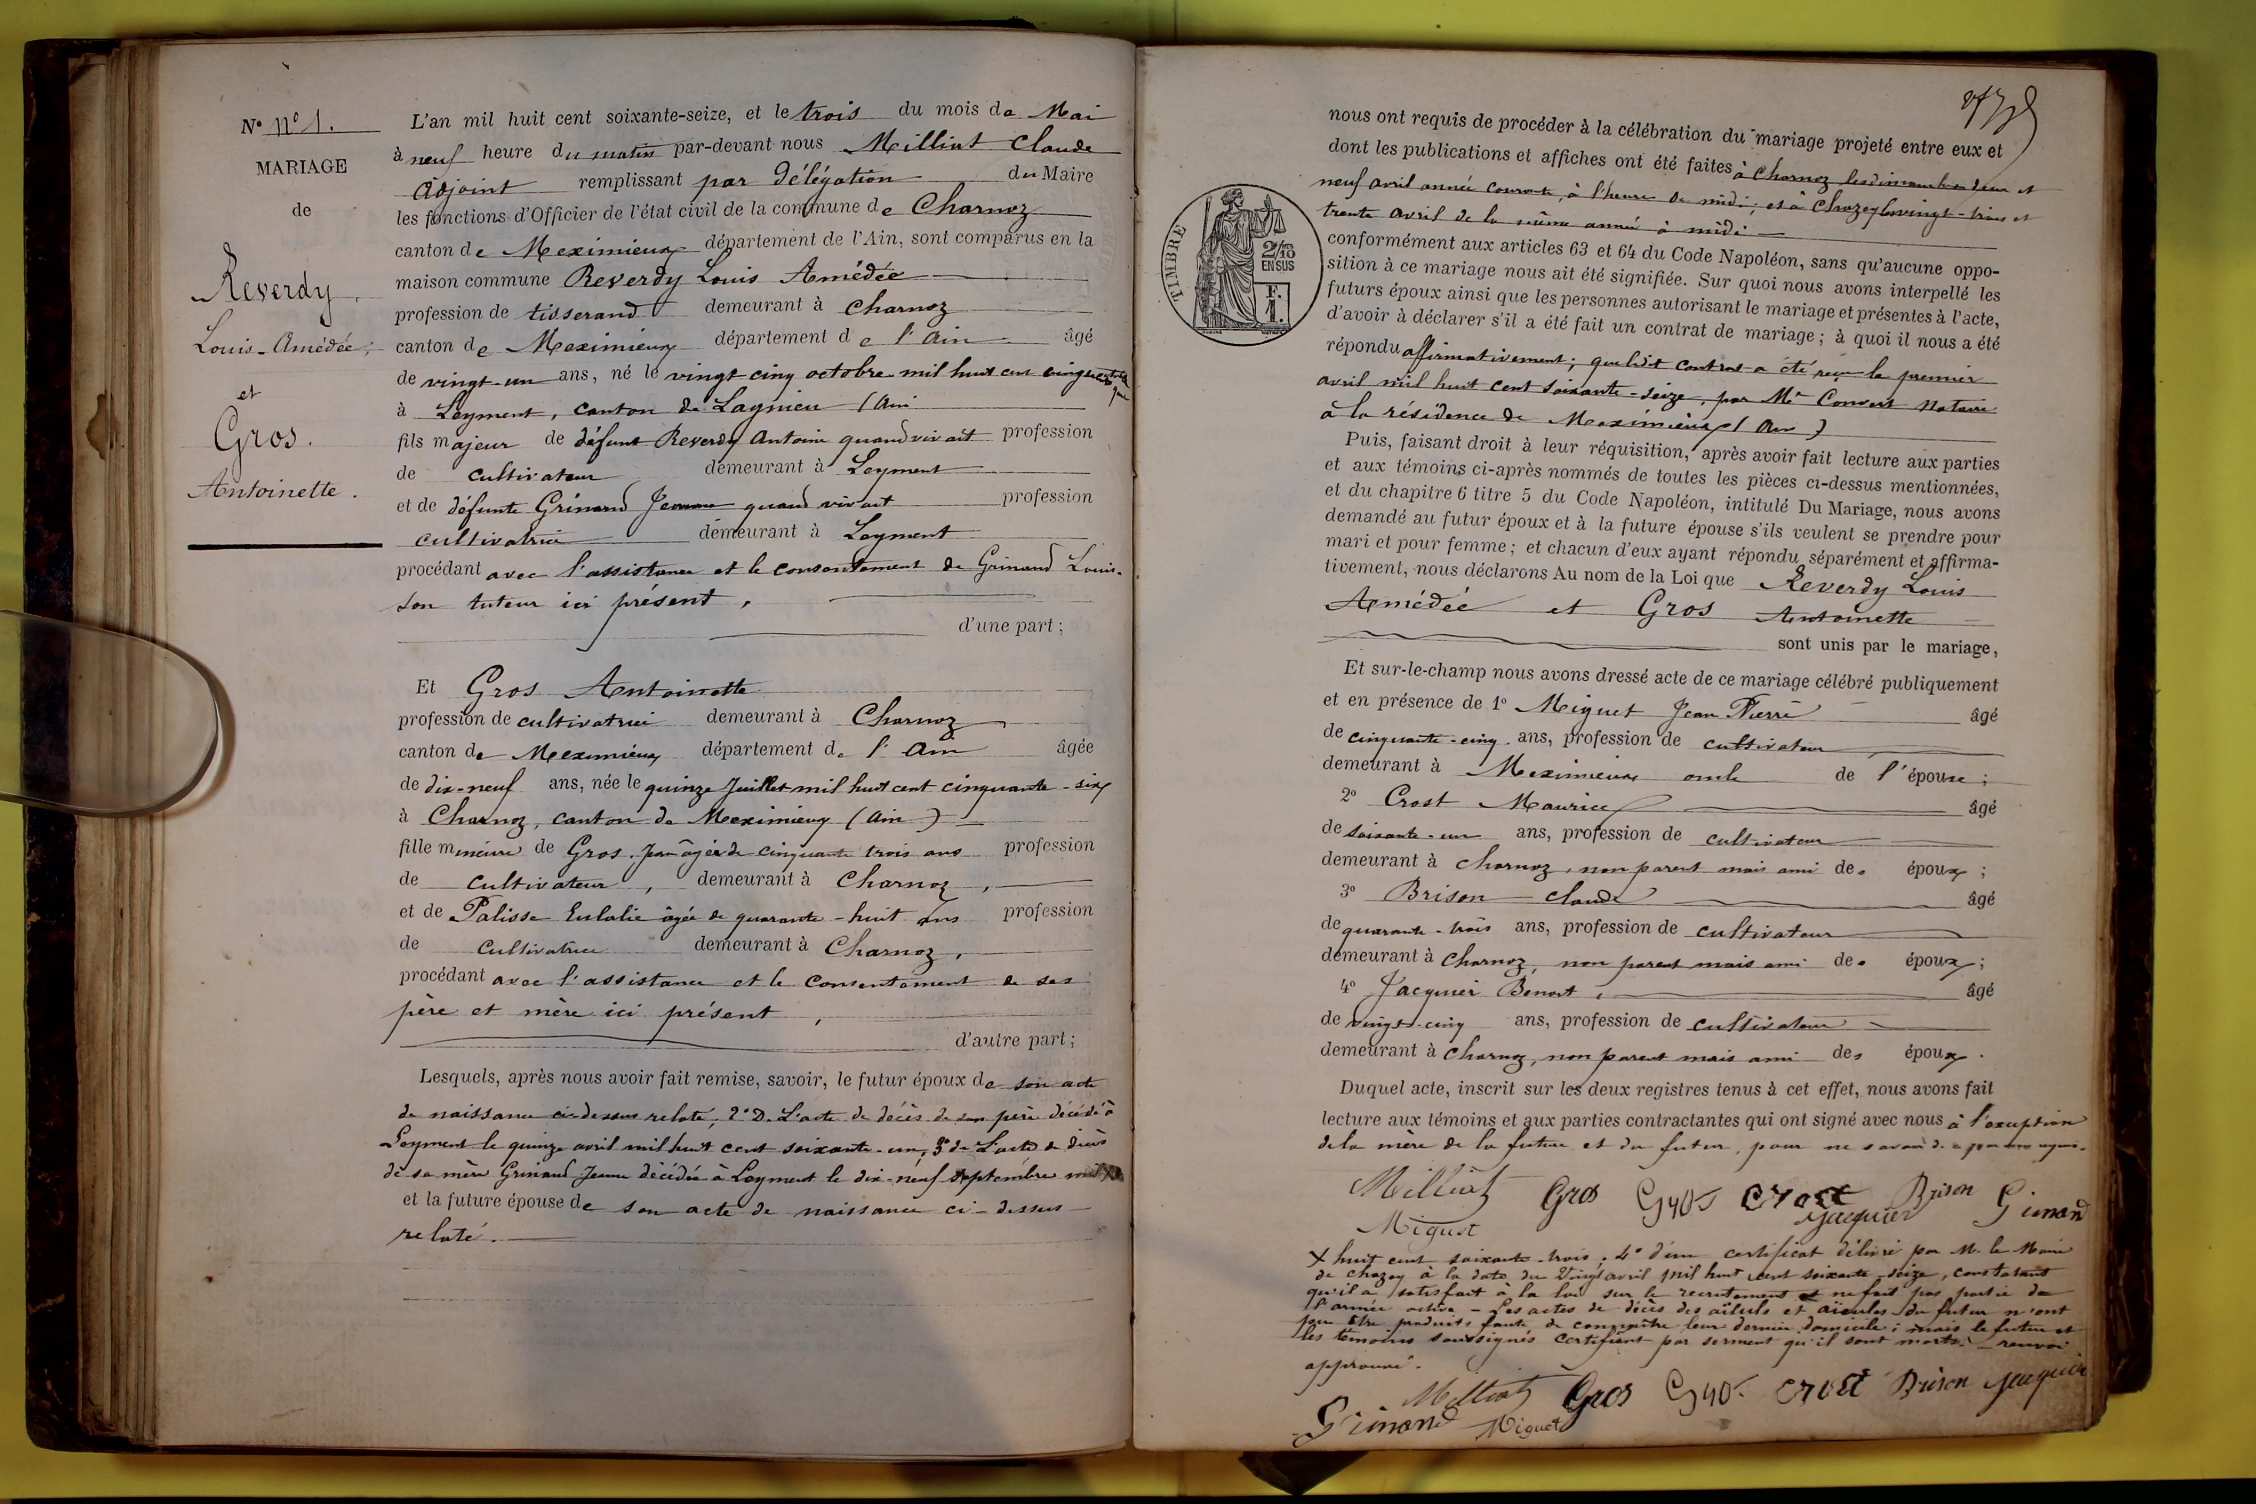 N° n° 1.
MARIAGE
de
Reverdy
Louis-Amédée;
et
Gros.
Antoinette.
L'an mil huit cent soixante-seize, et le trois du mois de Mai
à neuf heure du matin par-devant nous Milliat Claude
adjoint remplissant par délégation du Maire
les fonctions d'Officier de l'état civil de la commune de Charnoz
canton de Meximieux département de l'Ain, sont comparus en la
maison commune Reverdy Louis Amédée
profession de tisserand demeurant à Charnoz
canton de Meximieux département de l'Ain âgé
de vingt-un ans, né le vingt cinq octobre mil huit cent cinquante
à Leyment, canton de Lagnieu (Ain
fils majeur de défunt Reverdy Antoine quand vivait profession
de cultivateur demeurant à Leyment
et de défunte Grinand Jeanne quand vivait profession
cultivatrice demeurant à Leyment
procédant avec l'assistance et le consentement de Grinand Louis
son tuteur ici présent,
d'une part;
Et Gros Antoinette
profession de cultivatrice demeurant à Charnoz
canton de Meximieux département de l'Ain âgée
de dix-neuf ans, née le quinze Juillet mil huit cent cinquante-six
à Charnoz, canton de Meximieux (Ain)
fille mineure de Gros Jean âgé de cinquante trois ans profession
de cultivateur, demeurant à Charnoz,
et de Palisse Eulalie âgée de quarante-huit ans profession
de cultivatrice demeurant à Charnoz,
procédant avec l'assistance et le consentement de ses
père et mère ici présent,
d'autre part;
Lesquels, après nous avoir fait remise, savoir, le futur époux de son acte
de naissance ci-dessus relaté, 2° D. L'acte de décès de son père décédé à
Leyment le quinze avril mil huit cent soixante-un, 3° de L'acte de décès
de sa mère Grinand Jeanne décédée à Leyment le dix-neuf septembre mil
et la future épouse de son acte de naissance ci-dessus
relaté.
nous ont requis de procéder à la célébration du mariage projeté entre eux et
dont les publications et affiches ont été faites à Charnoz les dimanches deux et
neuf avril année courante, à l'heure de midi; et à Chazey les vingt-trois et
trente avril de la même année à midi
TIMBRE
2/10
EN SUS
F.
1.
conformément aux articles 63 et 64 du Code Napoléon, sans qu'aucune oppo-
sition à ce mariage nous ait été signifiée. Sur quoi nous avons interpellé les
futurs époux ainsi que les personnes autorisant le mariage et présentes à l'acte,
d'avoir à déclarer s'il a été fait un contrat de mariage; à quoi il nous a été
répondu affirmativement; que ledit contrat a été reçu le premier
avril mil huit cent soixante-seize, par Me Convert Notaire
à la résidence de Meximieux (Ain)
Puis, faisant droit à leur réquisition, après avoir fait lecture aux parties
et aux témoins ci-après nommés de toutes les pièces ci-dessus mentionnées,
et du chapitre 6 titre 5 du Code Napoléon, intitulé Du Mariage, nous avons
demandé au futur époux et à la future épouse s'ils veulent se prendre pour
mari et pour femme; et chacun d'eux ayant répondu séparément et affirma-
tivement, nous déclarons Au nom de la Loi que Reverdy Louis
Amédée et Gros Antoinette
sont unis par le mariage,
Et sur-le-champ nous avons dressé acte de ce mariage célébré publiquement
et en présence de 1° Miguet Jean Pierre âgé
de cinquante-cinq ans, profession de cultivateur
demeurant à Meximieux oncle de l'épouse;
2° Crost Maurice âgé
de soixante-un ans, profession de cultivateur
demeurant à Charnoz, non parent mais ami des époux;
3° Brison Claude âgé
de quarante-trois ans, profession de cultivateur
demeurant à Charnoz, non parent mais ami des époux;
4° Jacquier Benoit, âgé
de vingt-cinq ans, profession de cultivateur
demeurant à Charnoz, non parent mais ami des époux.
Duquel acte, inscrit sur les deux registres tenus à cet effet, nous avons fait
lecture aux témoins et aux parties contractantes qui ont signé avec nous à l'exception
de la mère de la future et du futur, pour ne savoir de ce requis.
Milliat Gros Gros Crost Brison Grinand
Miguet Jacquier
X huit cent soixante-trois; 4° d'un certificat délivré par M. le Maire
de Chazey à la date du vingt avril mil huit cent soixante-seize, constatant
qu'il a satisfait à la loi sur le recrutement et ne fait pas partie de
l'armée active - Les actes de décès des aïeuls et aïeules du futur n'ont
pu être produits faute de connaître leur dernier domicile; mais le futur et
les témoins soussignés certifient par serment qu'il sont morts. - renvoi
approuvé.
Milliat Gros Gros Crost Brison Jacquier
Grinand Miguet